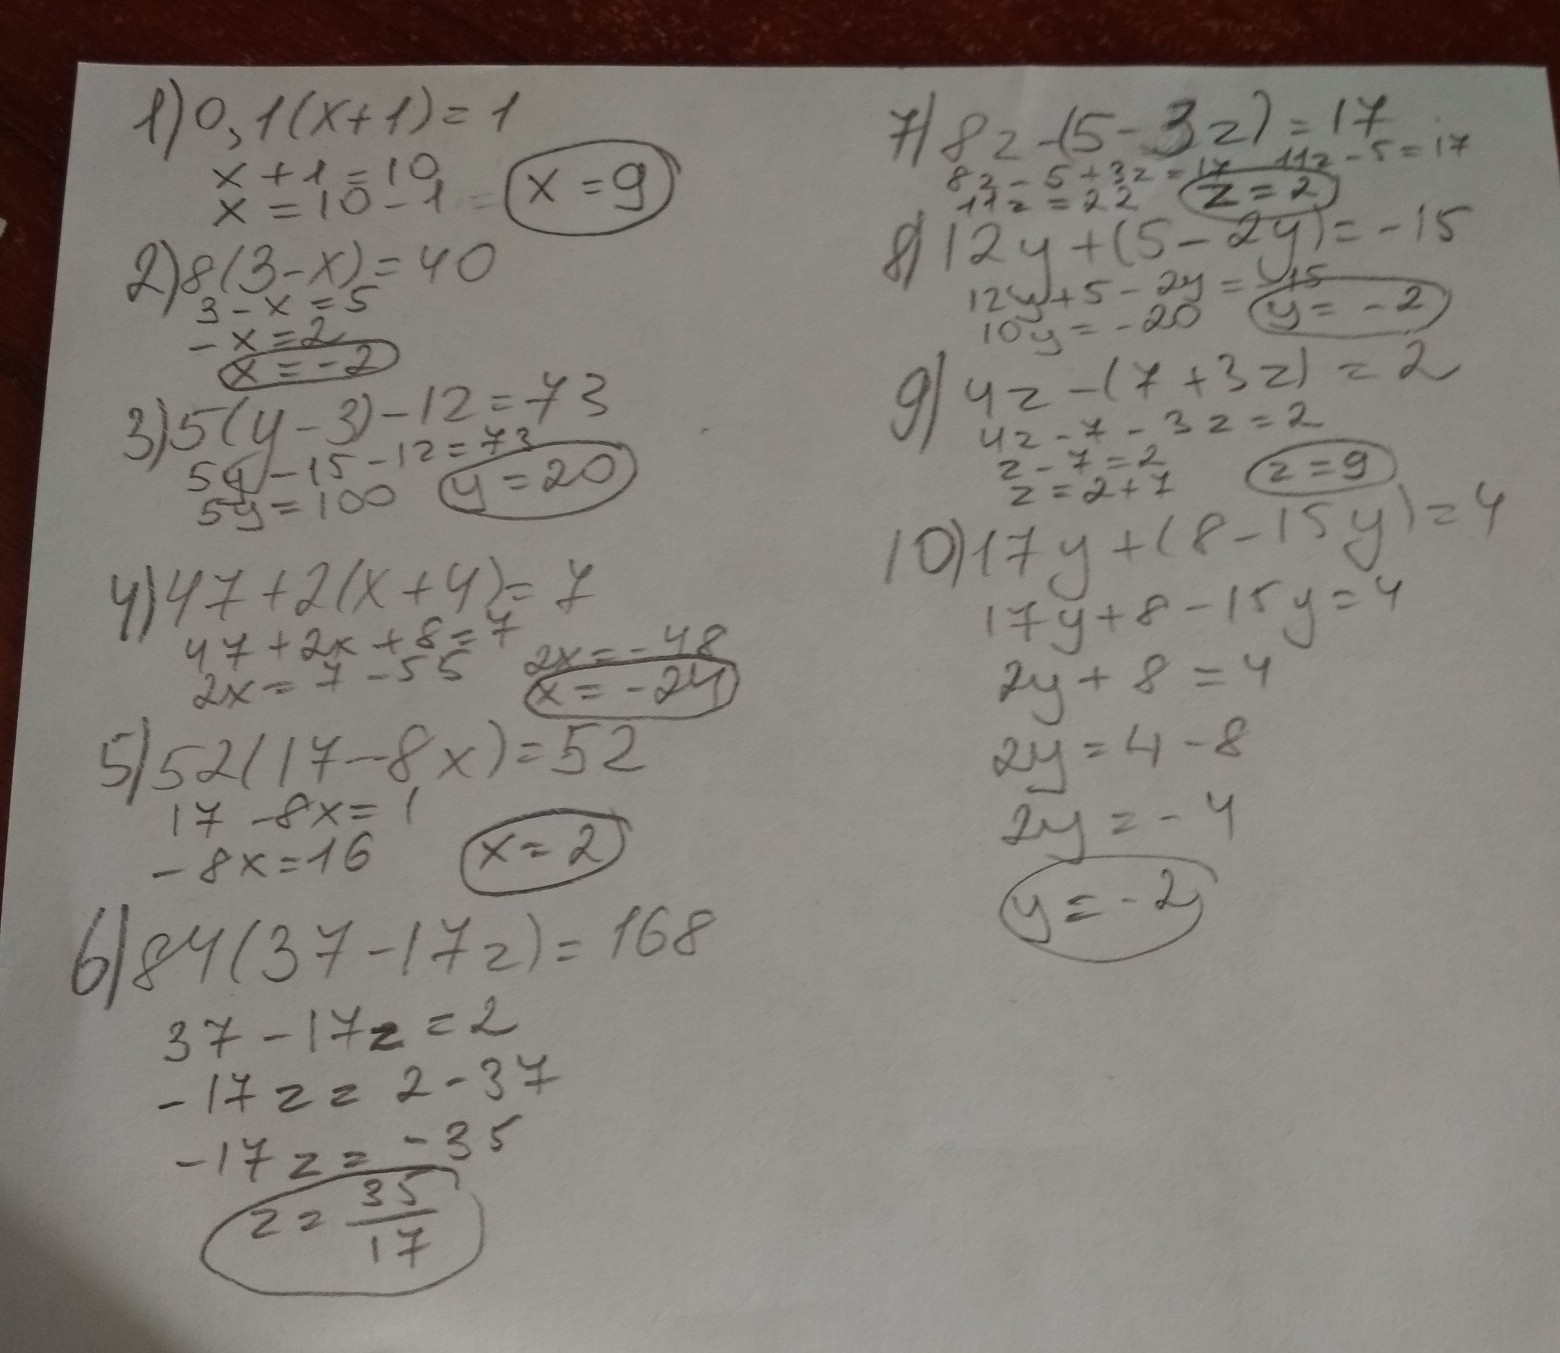 1) 0,1(x+1)=1
x+1=10
x=10-1 = x=9
2) 8(3-x)=40
3-x=5
-x=2
x=-2
3) 5(y-3)-12=73
5y-15-12=73
5y=100 y=20
4) 47+2(x+4)=7
47+2x+8=7
2x=7-55
2x=-48
x=-24
5) 52(17-8x)=52
17-8x=1
-8x=16 x=2
6) 84(37-17z)=168
37-17z=2
-17z=2-37
-17z=-35
z=35/17
7) 8z-(5-3z)=17
8z-5+3z=17 11z-5=17
11z=22 z=2
8) 12y+(5-2y)=-15
12y+5-2y=-15
10y=-20 y=-2
9) 4z-(7+3z)=2
4z-7-3z=2
z-7=2
z=2+7 z=9
10) 17y+(8-15y)=4
17y+8-15y=4
2y+8=4
2y=4-8
2y=-4
y=-2